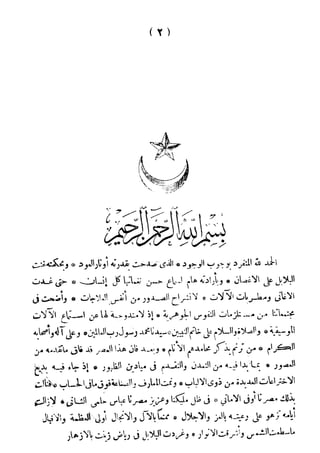 (٢)
بسم الله الرحمن الرحيم
الحمد لله المنفرد بوجوب الوجود * الذى صدحت بقدرته أوتار العود * وبحكمته تغنت
البلابل على الاغصان * وبارادته هام لسماع حسن نغماتها كل إنسان * حتى غدت
الاغانى ومطربات الآلات * لانشراح الصدور من أنفس العلاجات * وأضحت فى
مجتمعاتنا من مستلزمات النفوس الجوهرية * إذ لا مندوحة لها عن استماع الآلات
الموسيقية * والصلاة والسلام على خاتم النبيين * سيدنا محمد رسول رب العالمين * وعلى آله وأصحابه
الكرام * من ترنم بذكر محامدهم الأنام * وبعد فان هذا العصر قد فاق ما تقدمه من
العصور * بما بدا فيه من التمدن والتقدم فى ميادين الظهور * إذ جاء فيه بديع
الاختراعات العديدة من ذوى الالباب * ونمت المعارف والصناعة فوق مافى الحساب * فنالت
بذلك مصرنا أوفى الامانى * فى ظل مليكنا وعزيز مصرنا عباس حلمى الثانى * لازالت
أيامه تزهو على رعيته بالعز والاجلال * ممتعا بالآل والانجال أولى العظمة والاقبال
ماسطعت الشمس وأشرقت الانوار * وغردت البلابل فى رياض زينت بالازهار